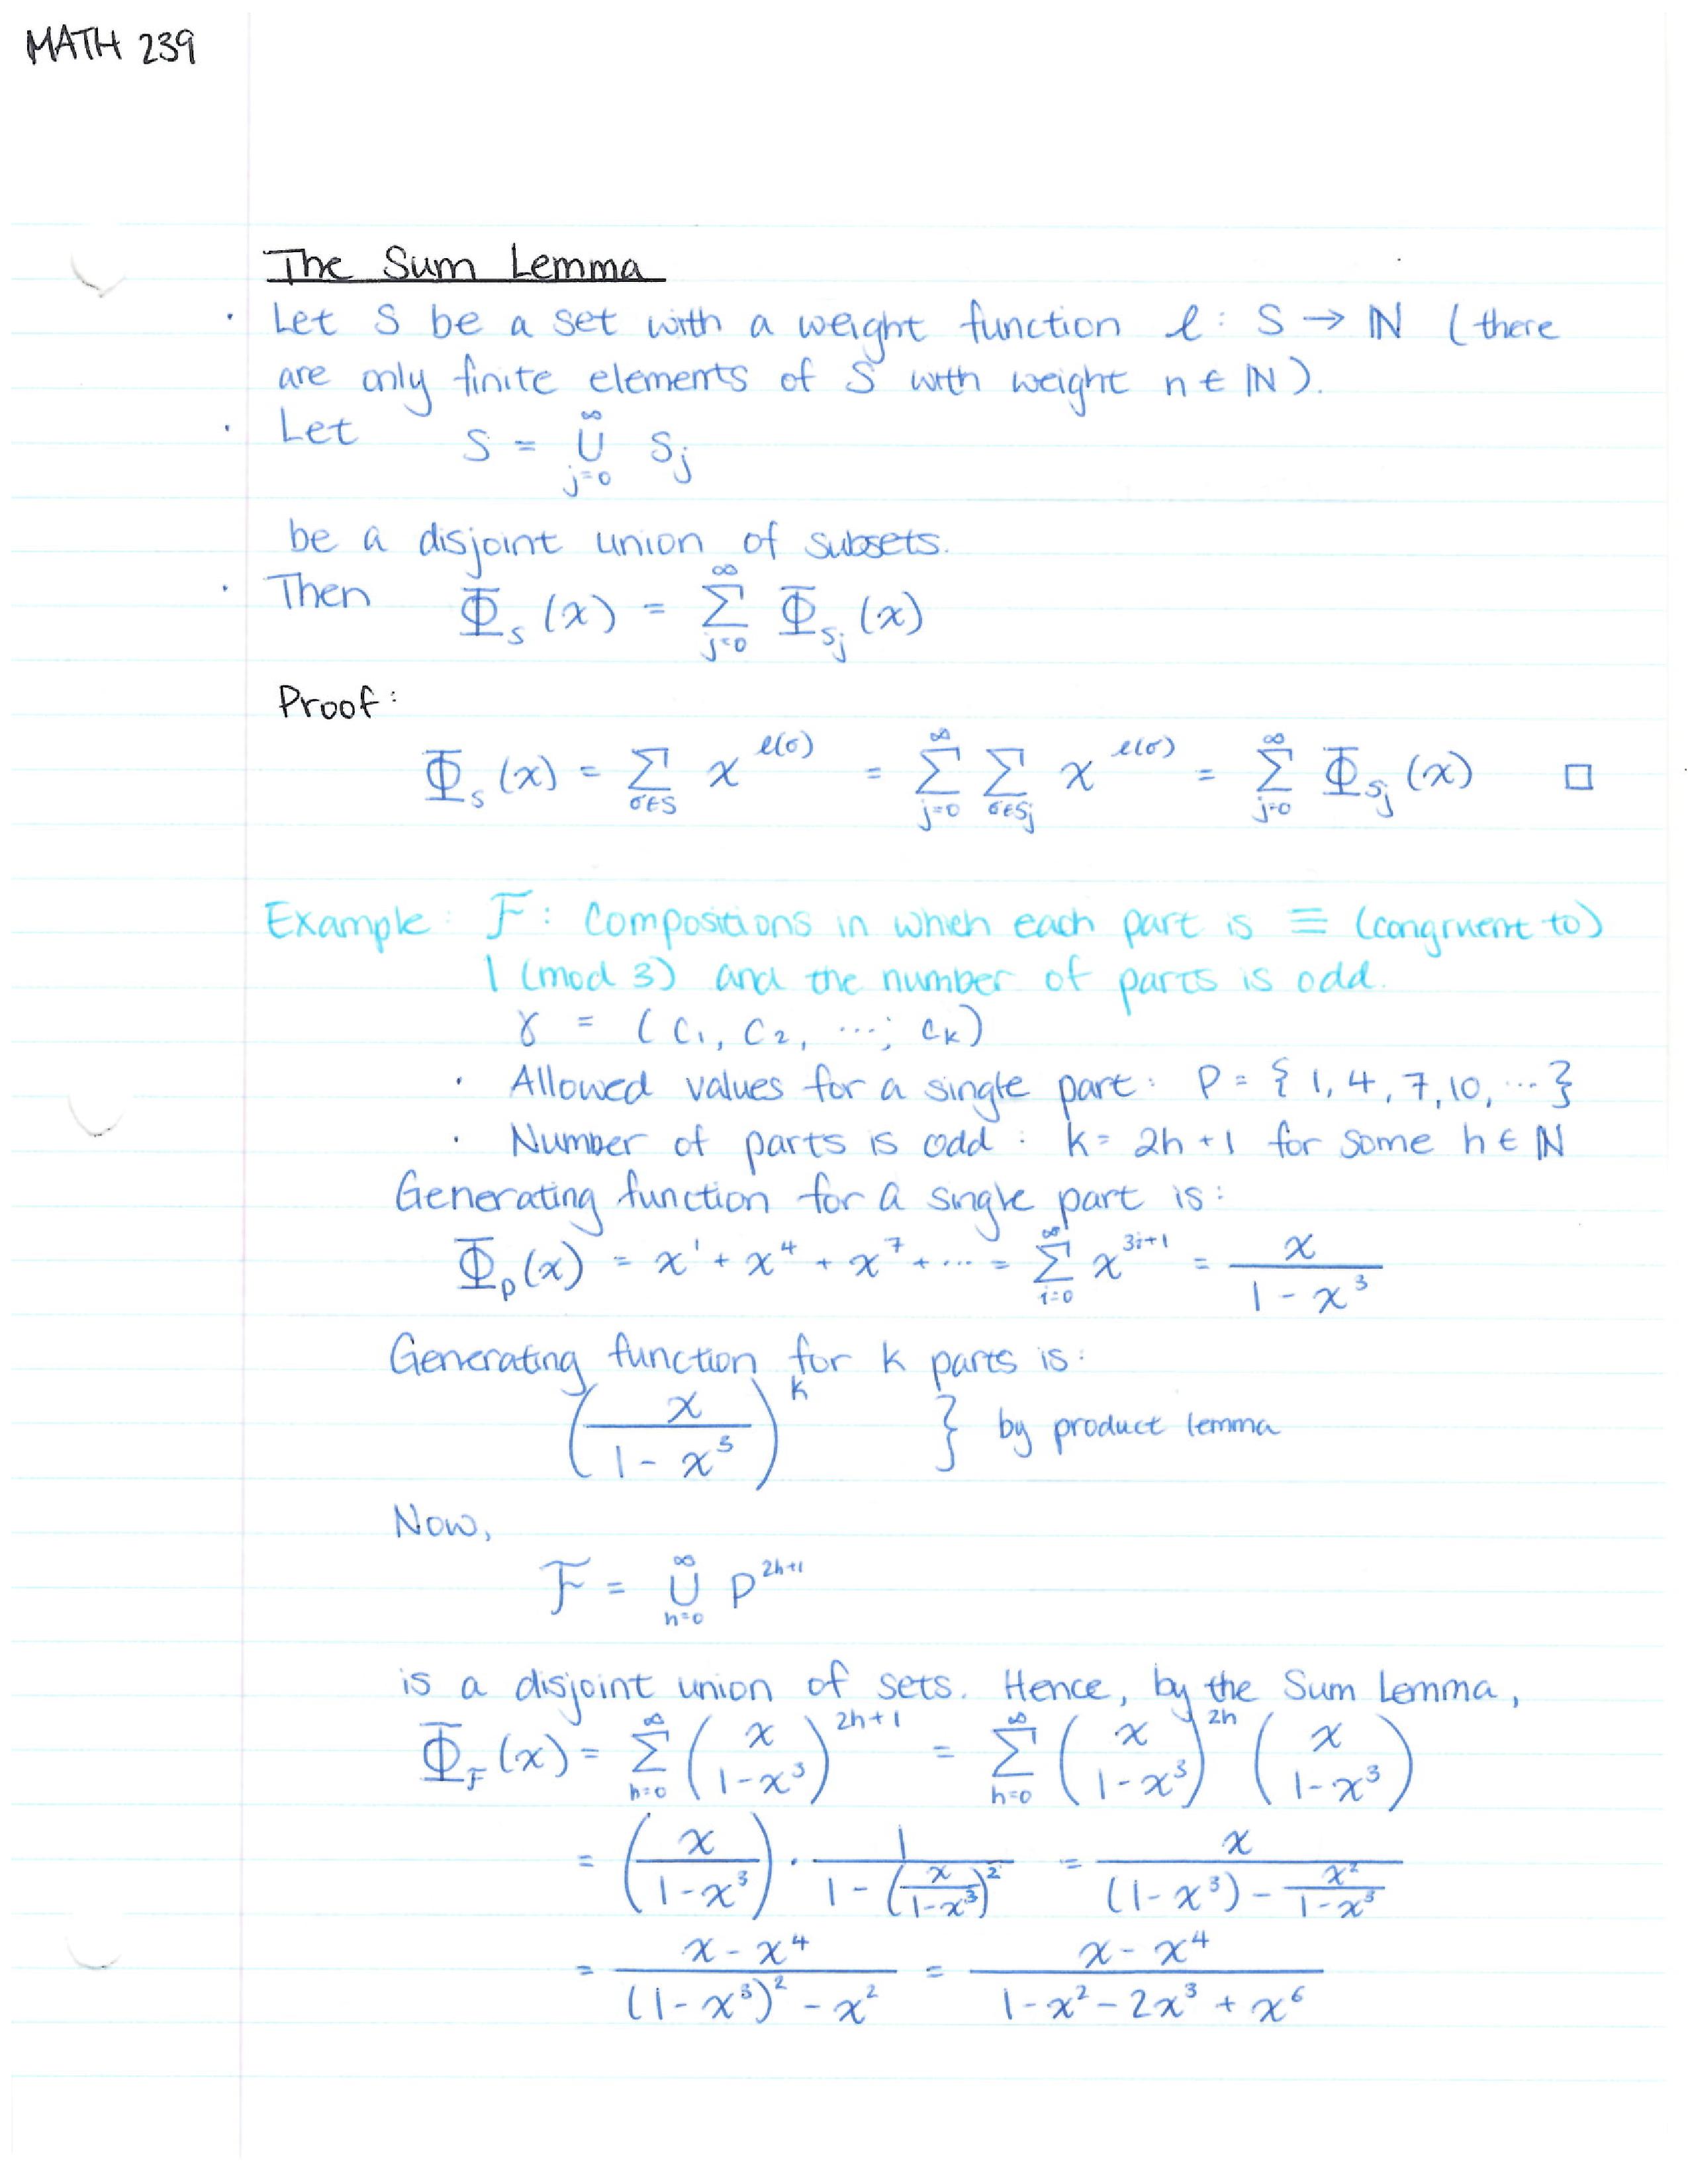 MATH 239
The Sum Lemma
· Let S be a set with a weight function ℓ: S → ℕ (there
are only finite elements of S with weight n ∈ ℕ).
· Let S = ∞∪j=0 Sj
be a disjoint union of subsets.
· Then Φ_S(x) = ∑_{j=0}^{∞} Φ_{Sj}(x)
Proof:
Φ_S(x) = ∑_{σ∈S} x^{ℓ(σ)} = ∑_{j=0}^{∞} ∑_{σ∈Sj} x^{ℓ(σ)} = ∑_{j=0}^{∞} Φ_{Sj}(x) □
Example: F: Compositions in which each part is ≡ (congruent to)
1 (mod 3) and the number of parts is odd.
γ = (c₁, c₂, ..., c_k)
· Allowed values for a single part: P = {1, 4, 7, 10, ...}
· Number of parts is odd: k = 2h+1 for some h ∈ ℕ
Generating function for a single part is:
Φ_P(x) = x¹ + x⁴ + x⁷ + ... = ∑_{i=0}^{∞} x^{3i+1} = x / (1 - x³)
Generating function for k parts is:
(x / (1 - x³))^k } by product lemma
Now,
F = ∪_{h=0}^{∞} P^{2h+1}
is a disjoint union of sets. Hence, by the Sum Lemma,
Φ_F(x) = ∑_{h=0}^{∞} (x / 1-x³)^{2h+1} = ∑_{h=0}^{∞} (x / 1-x³)^{2h} (x / 1-x³)
= (x / (1-x³)) · 1 / (1 - (x / (1-x³))²) = x / ((1-x³) - x² / (1-x³))
= (x - x⁴) / ((1-x³)² - x²) = (x - x⁴) / (1 - x² - 2x³ + x⁶)